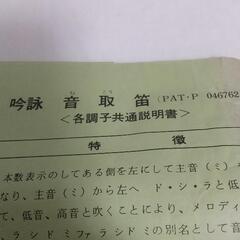 ねとり
吟詠 音取笛 (PAT・P 046762
<各調子共通説明書>
特徴
本数表示のしてある側を左にして主音(ミ)
なり、主音(ミ)から左へ ド・シ・ラと低
て、低音、高音と吹くことにより、メロディ
ラ シ ド ミ ファ ラ シ ド ミ の別名として音